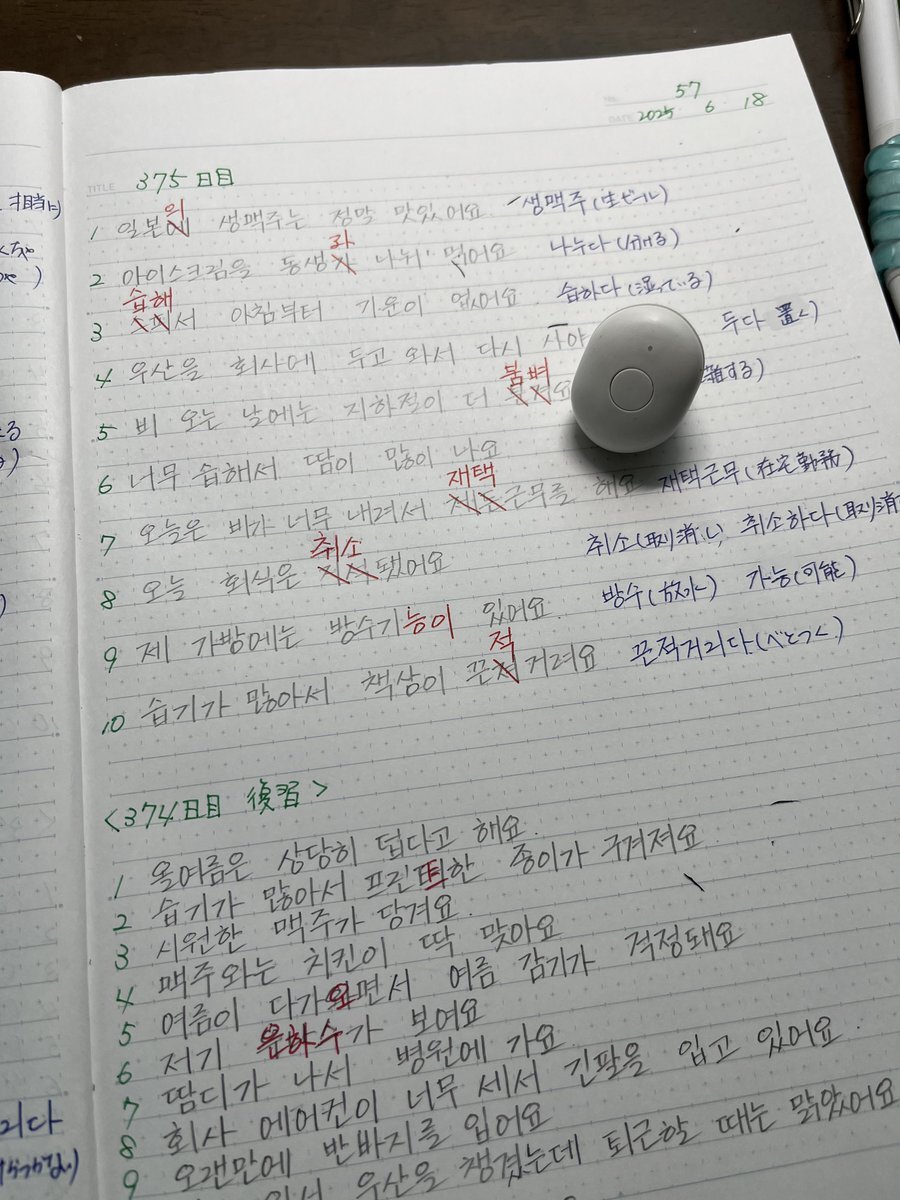 NO. 57
DATE 2025 6 18
TITLE 375日目
1 일본의 생맥주는 정말 맛있어요 생맥주(生ビール)
2 아이스크림을 동생과 나눠 먹어요 나누다(分ける)
3 습해서 아침부터 기운이 없어요 습하다(湿っている)
4 우산을 회사에 두고 와서 다시 사야 두다 置く)
5 비 오는 날에는 지하철이 더 붐벼요 雑する)
6 너무 습해서 땀이 많이 나요
7 오늘은 비가 너무 내려서 재택근무를 해요 재택근무(在宅勤務)
8 오늘 회식은 취소됐어요 취소(取り消し) 취소하다(取り消す
9 제 가방에는 방수기능이 있어요 방수(放水) 가능(可能)
10 습기가 많아서 책상이 끈적거려요 끈적거리다(べとつく)
<374日目 復習>
1 올여름은 상당히 덥다고 해요
2 습기가 많아서 프린트한 종이가 구겨져요
3 시원한 맥주가 당겨요
4 맥주와는 치킨이 딱 맞아요
5 여름이 다가오면서 여름 감기가 걱정돼요
6 저기 은하수가 보여요
7 땀디가 나서 병원에 가요
8 회사 에어컨이 너무 세서 긴팔을 입고 있어요
9 오랜만에 반바지를 입어요
우산을 챙겼는데 퇴근할 때는 맑았어요
担当に)
리다